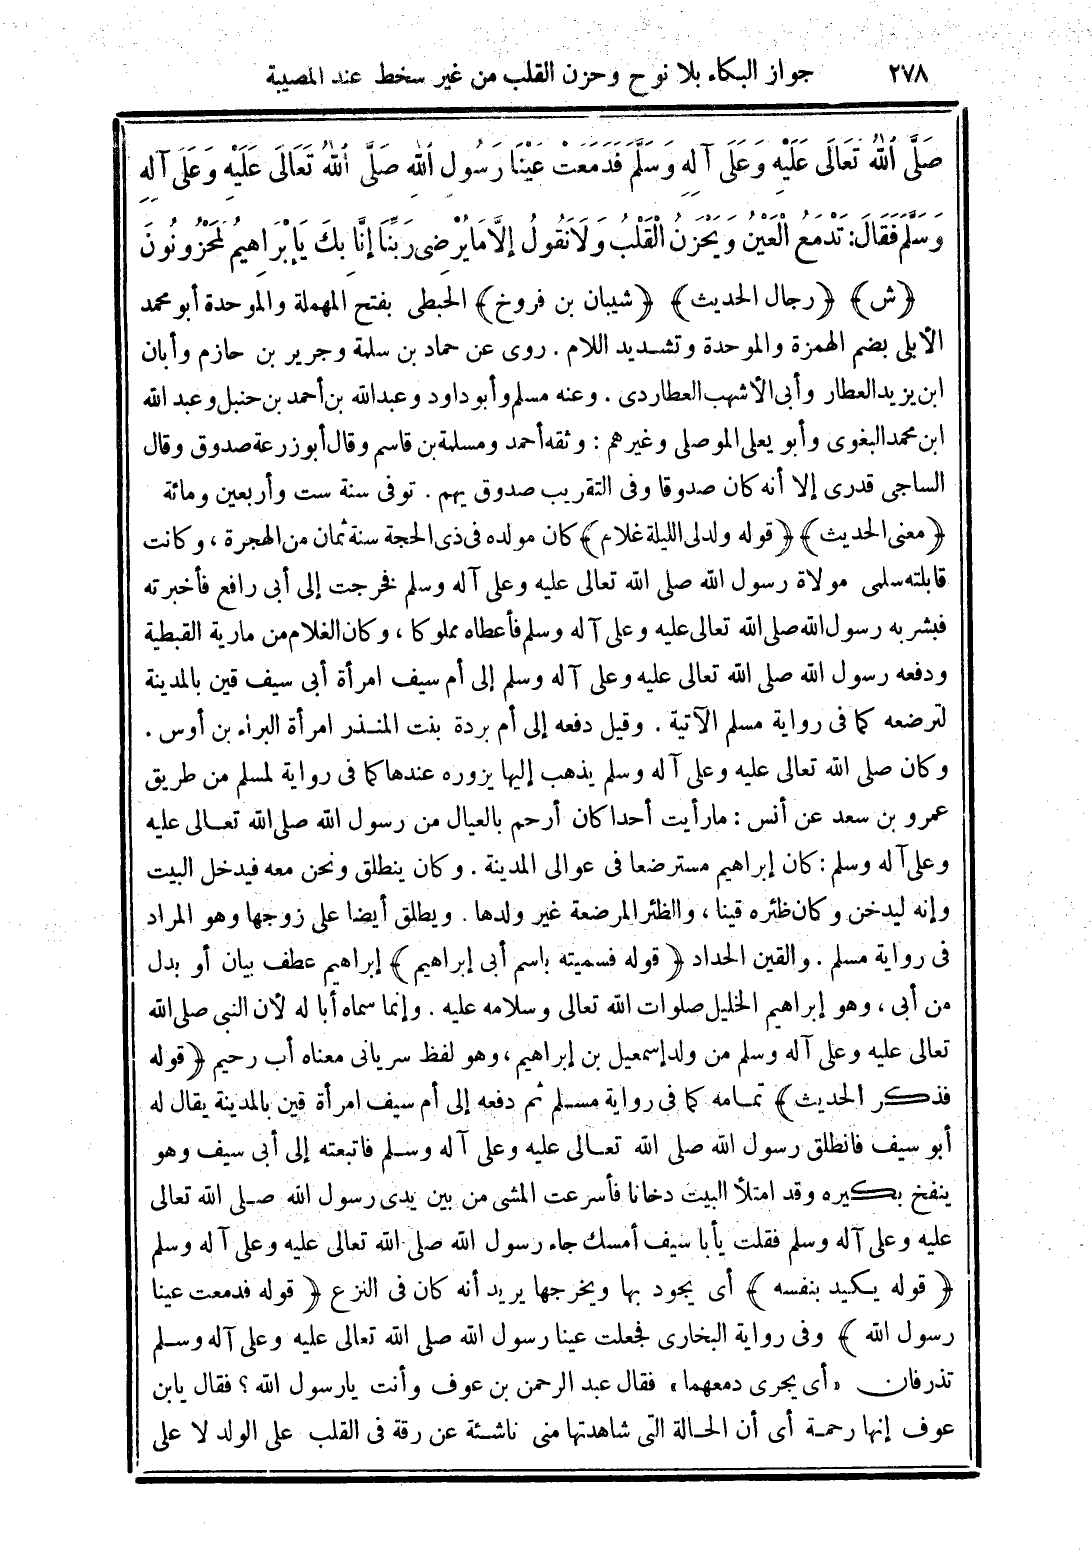 ٢٧٨ جواز البكاء بلا نوح وحزن القلب من غير سخط عند المصيبة
صَلَّى اللهُ تَعَالَى عَلَيْهِ وَعَلَى آلِهِ وَسَلَّمَ فَدَمَعَتْ عَيْنَا رَسُولِ اللهِ صَلَّى اللهُ تَعَالَى عَلَيْهِ وَعَلَى آلِهِ
وَسَلَّمَ فَقَالَ: تَدْمَعُ الْعَيْنُ وَيَحْزَنُ الْقَلْبُ وَلَا نَقُولُ إِلَّا مَا يُرْضِى رَبَّنَا إِنَّا بِكَ يَا إِبْرَاهِيمُ لَمَحْزُونُونَ
﴿ش﴾ ﴿رجال الحديث﴾ ﴿شيبان بن فروخ﴾ الحبطى بفتح المهملة والموحدة أبو محمد
الأبلى بضم الهمزة والموحدة وتشديد اللام . روى عن حماد بن سلمة وجرير بن حازم وأبان
ابن يزيد العطار وأبى الأشهب العطاردى . وعنه مسلم وأبو داود وعبد الله بن أحمد بن حنبل وعبد الله
ابن محمد البغوى وأبو يعلى الموصلى وغيرهم : وثقه أحمد ومسلمة بن قاسم وقال أبو زرعة صدوق وقال
الساجى قدرى إلا أنه كان صدوقا وفى التقريب صدوق يهم . توفى سنة ست وأربعين ومائة
﴿معنى الحديث﴾ ﴿قوله ولد لى الليلة غلام﴾ كان مولده فى ذى الحجة سنة ثمان من الهجرة ، وكانت
قابلته سلمى مولاة رسول الله صلى الله تعالى عليه وعلى آله وسلم فخرجت إلى أبى رافع فأخبرته
فبشر به رسول الله صلى الله تعالى عليه وعلى آله وسلم فأعطاه مملوكا ، وكان الغلام من مارية القبطية
ودفعه رسول الله صلى الله تعالى عليه وعلى آله وسلم إلى أم سيف امرأة أبى سيف قين بالمدينة
لترضعه كما فى رواية مسلم الآتية . وقيل دفعه إلى أم بردة بنت المنذر امرأة البراء بن أوس .
وكان صلى الله تعالى عليه وعلى آله وسلم يذهب إليها يزوره عندها كما فى رواية لمسلم من طريق
عمرو بن سعد عن أنس : ما رأيت أحدا كان أرحم بالعيال من رسول الله صلى الله تعالى عليه
وعلى آله وسلم : كان إبراهيم مسترضعا فى عوالى المدينة . وكان ينطلق ونحن معه فيدخل البيت
وإنه ليدخن وكان ظئره قينا ، والظئر المرضعة غير ولدها . ويطلق أيضا على زوجها وهو المراد
فى رواية مسلم . والقين الحداد ﴿قوله فسميته باسم أبى إبراهيم﴾ إبراهيم عطف بيان أو بدل
من أبى ، وهو إبراهيم الخليل صلوات الله تعالى وسلامه عليه . وإنما سماه أبا له لأن النبى صلى الله
تعالى عليه وعلى آله وسلم من ولد إسمعيل بن إبراهيم ، وهو لفظ سريانى معناه أب رحيم ﴿قوله
فذكر الحديث﴾ تمامه كما فى رواية مسلم ثم دفعه إلى أم سيف امرأة قين بالمدينة يقال له
أبو سيف فانطلق رسول الله صلى الله تعالى عليه وعلى آله وسلم فاتبعته إلى أبى سيف وهو
ينفخ بكيره وقد امتلأ البيت دخانا فأسرعت المشى من بين يدى رسول الله صلى الله تعالى
عليه وعلى آله وسلم فقلت يأبا سيف أمسك جاء رسول الله صلى الله تعالى عليه وعلى آله وسلم
﴿قوله يكيد بنفسه﴾ أى يجود بها ويخرجها يريد أنه كان فى النزع ﴿قوله فدمعت عينا
رسول الله﴾ وفى رواية البخارى فجعلت عينا رسول الله صلى الله تعالى عليه وعلى آله وسلم
تذرفان «أى يجرى دمعهما» فقال عبد الرحمن بن عوف وأنت يارسول الله ؟ فقال يابن
عوف إنها رحمة أى أن الحالة التى شاهدتها منى ناشئة عن رقة فى القلب على الولد لا على